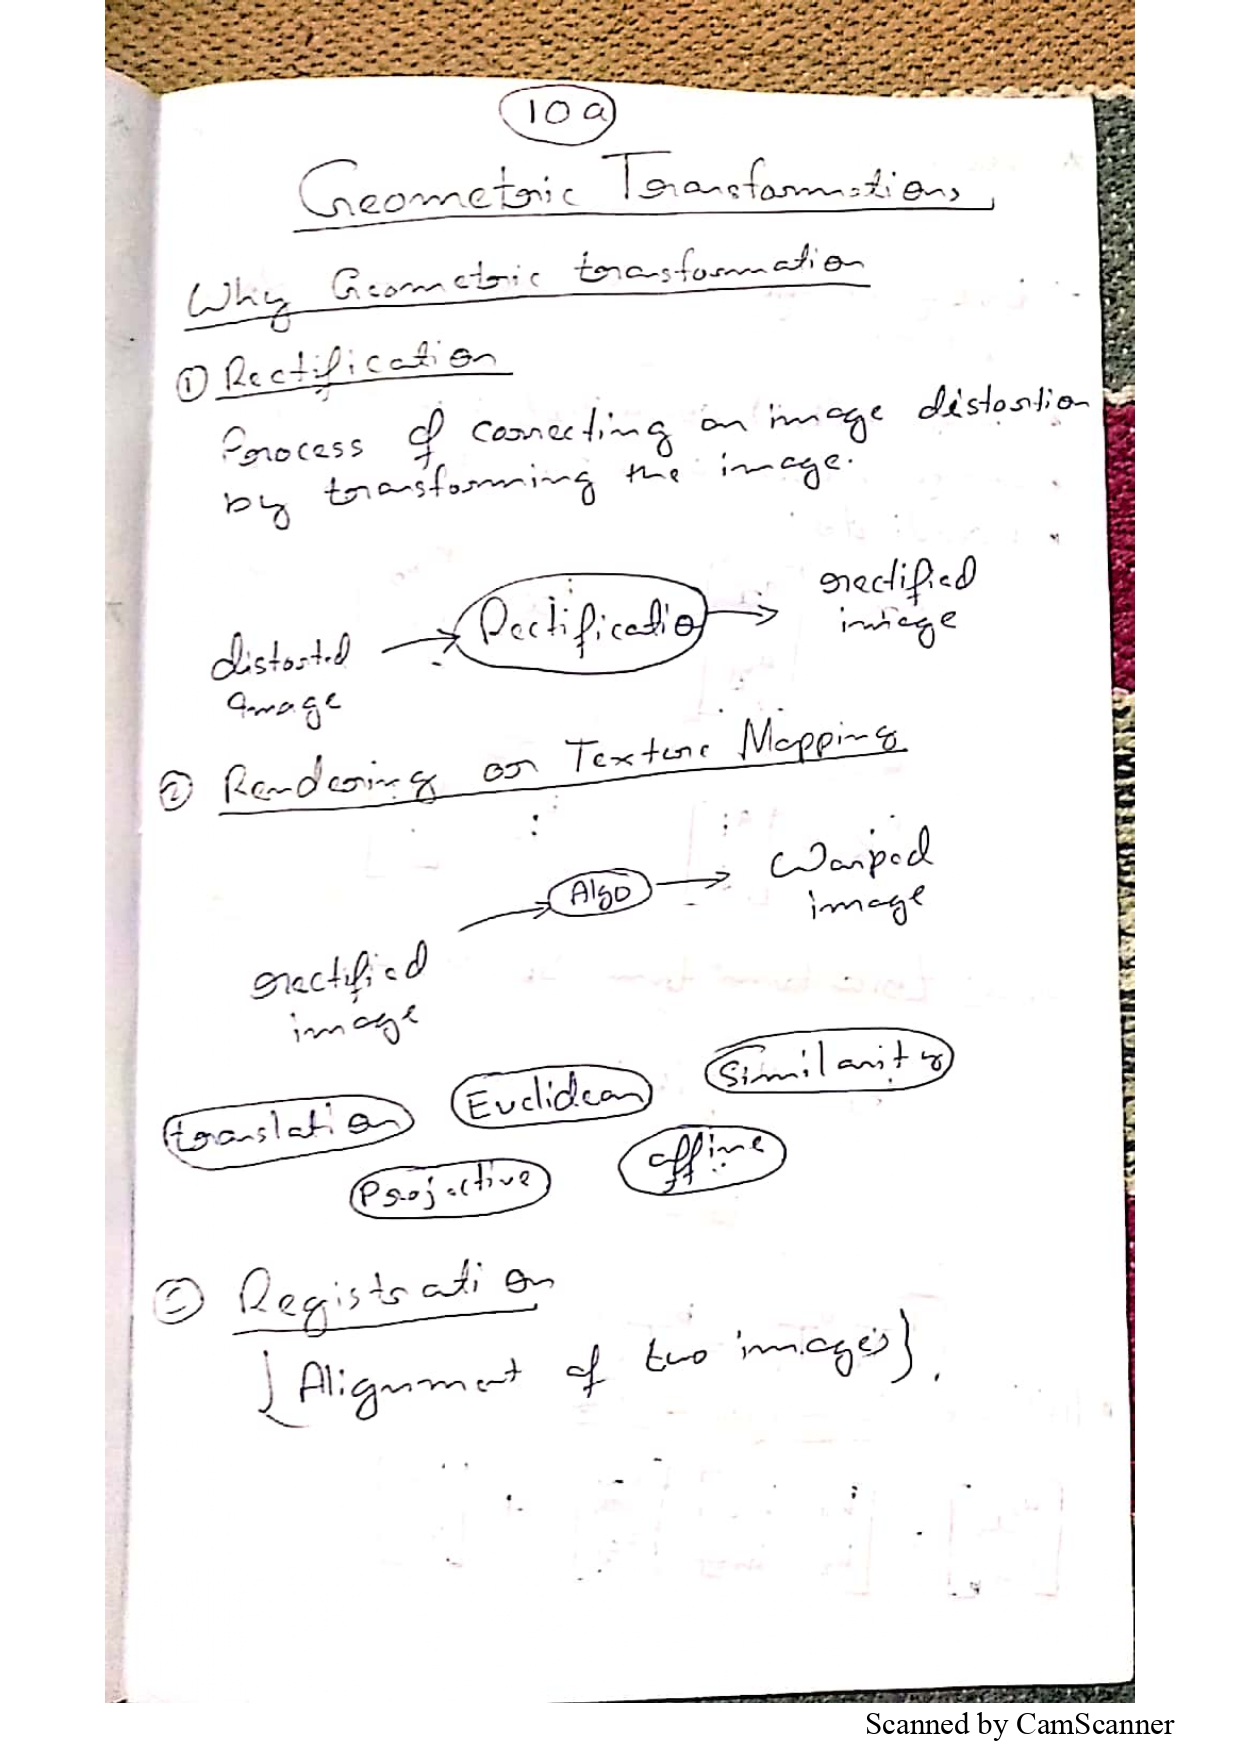 10a
Geometric Transformations
Why Geometric transformation
① Rectification
Process of correcting an image distortion
by transforming the image.
distorted
image
Rectification
rectified
image
② Rendering or Texture Mapping
rectified
image
Algo
Warped
image
translation
Euclidean
Similarity
Projective
affine
③ Registration
{Alignment of two images}.
Scanned by CamScanner